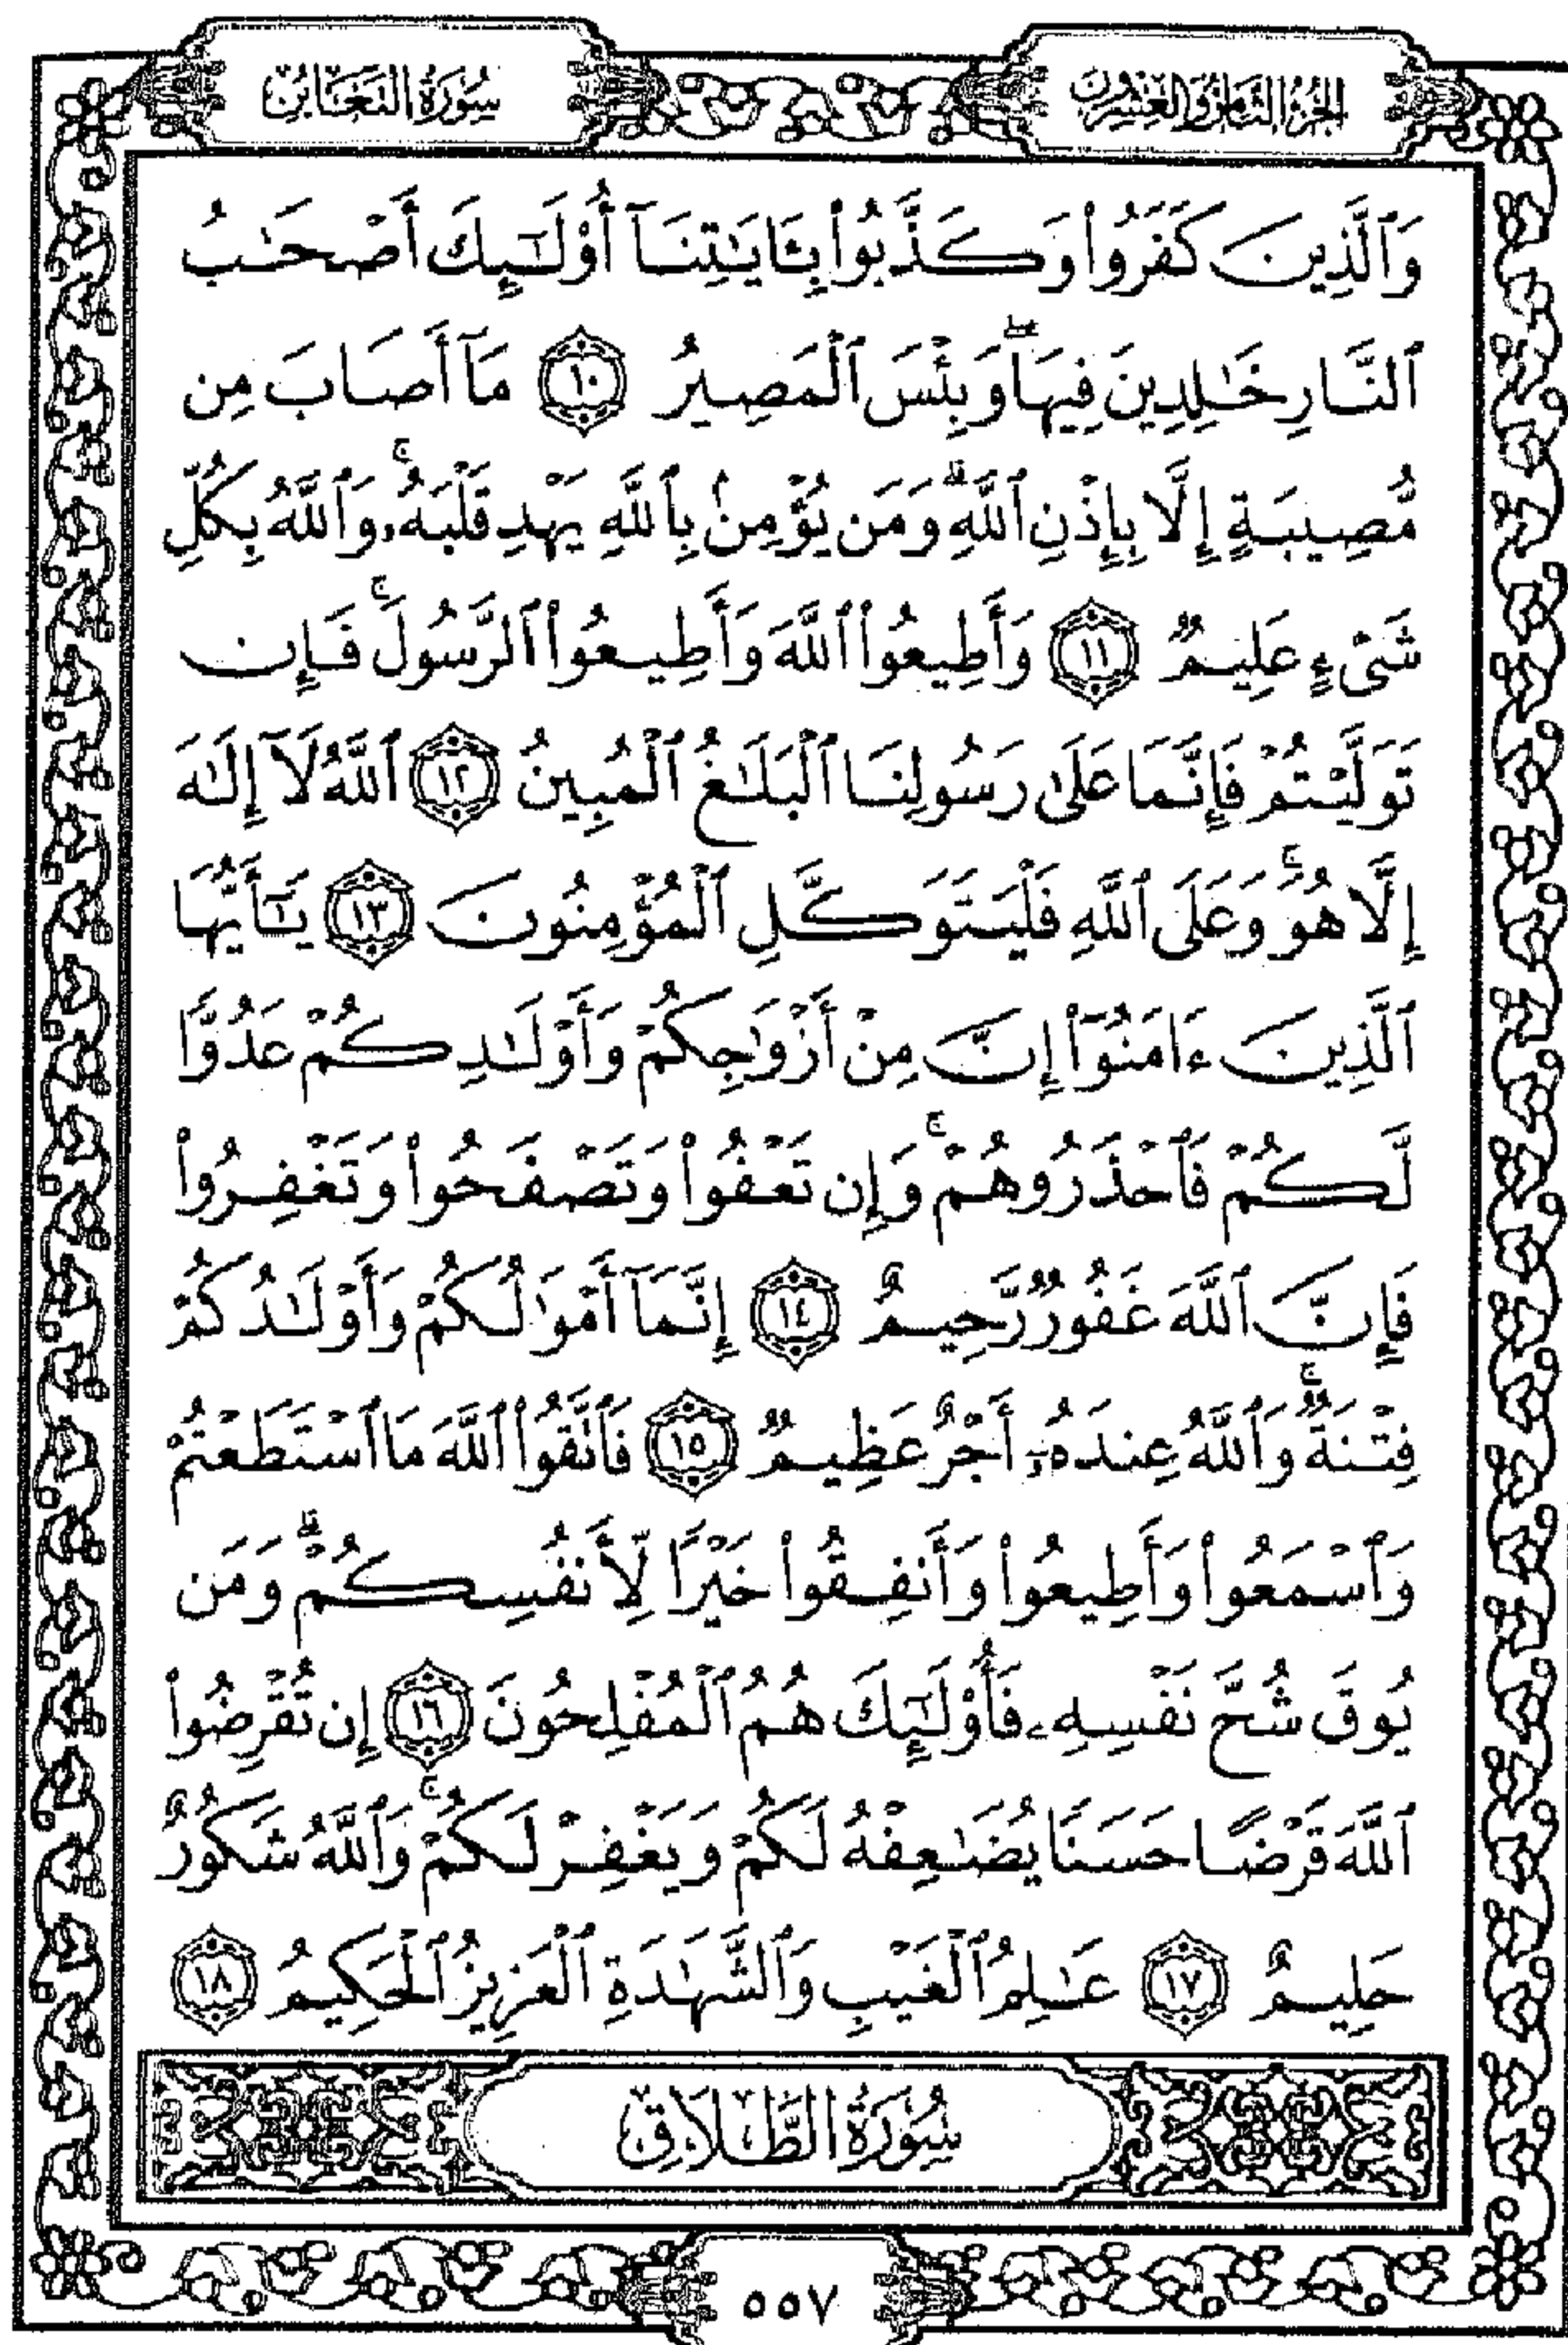 الجزء الثامن والعشرون
سورة التغابن
وَٱلَّذِينَ كَفَرُواْ وَكَذَّبُواْ بِـَٔايَٰتِنَآ أُوْلَٰٓئِكَ أَصْحَٰبُ
ٱلنَّارِ خَٰلِدِينَ فِيهَاۖ وَبِئْسَ ٱلْمَصِيرُ ١٠ مَآ أَصَابَ مِن
مُّصِيبَةٍ إِلَّا بِإِذْنِ ٱللَّهِۗ وَمَن يُؤْمِنۢ بِٱللَّهِ يَهْدِ قَلْبَهُۥۚ وَٱللَّهُ بِكُلِّ
شَىْءٍ عَلِيمٌ ١١ وَأَطِيعُواْ ٱللَّهَ وَأَطِيعُواْ ٱلرَّسُولَۚ فَإِن
تَوَلَّيْتُمْ فَإِنَّمَا عَلَىٰ رَسُولِنَا ٱلْبَلَٰغُ ٱلْمُبِينُ ١٢ ٱللَّهُ لَآ إِلَٰهَ
إِلَّا هُوَۚ وَعَلَى ٱللَّهِ فَلْيَتَوَكَّلِ ٱلْمُؤْمِنُونَ ١٣ يَٰٓأَيُّهَا
ٱلَّذِينَ ءَامَنُوٓاْ إِنَّ مِنْ أَزْوَٰجِكُمْ وَأَوْلَٰدِكُمْ عَدُوًّا
لَّكُمْ فَٱحْذَرُوهُمْۚ وَإِن تَعْفُواْ وَتَصْفَحُواْ وَتَغْفِرُواْ
فَإِنَّ ٱللَّهَ غَفُورٌ رَّحِيمٌ ١٤ إِنَّمَآ أَمْوَٰلُكُمْ وَأَوْلَٰدُكُمْ
فِتْنَةٌۚ وَٱللَّهُ عِندَهُۥٓ أَجْرٌ عَظِيمٌ ١٥ فَٱتَّقُواْ ٱللَّهَ مَا ٱسْتَطَعْتُمْ
وَٱسْمَعُواْ وَأَطِيعُواْ وَأَنفِقُواْ خَيْرًا لِّأَنفُسِكُمْۗ وَمَن
يُوقَ شُحَّ نَفْسِهِۦ فَأُوْلَٰٓئِكَ هُمُ ٱلْمُفْلِحُونَ ١٦ إِن تُقْرِضُواْ
ٱللَّهَ قَرْضًا حَسَنًا يُضَٰعِفْهُ لَكُمْ وَيَغْفِرْ لَكُمْۚ وَٱللَّهُ شَكُورٌ
حَلِيمٌ ١٧ عَٰلِمُ ٱلْغَيْبِ وَٱلشَّهَٰدَةِ ٱلْعَزِيزُ ٱلْحَكِيمُ ١٨
سُورَةُ الطَّلَاقِ
٥٥٧